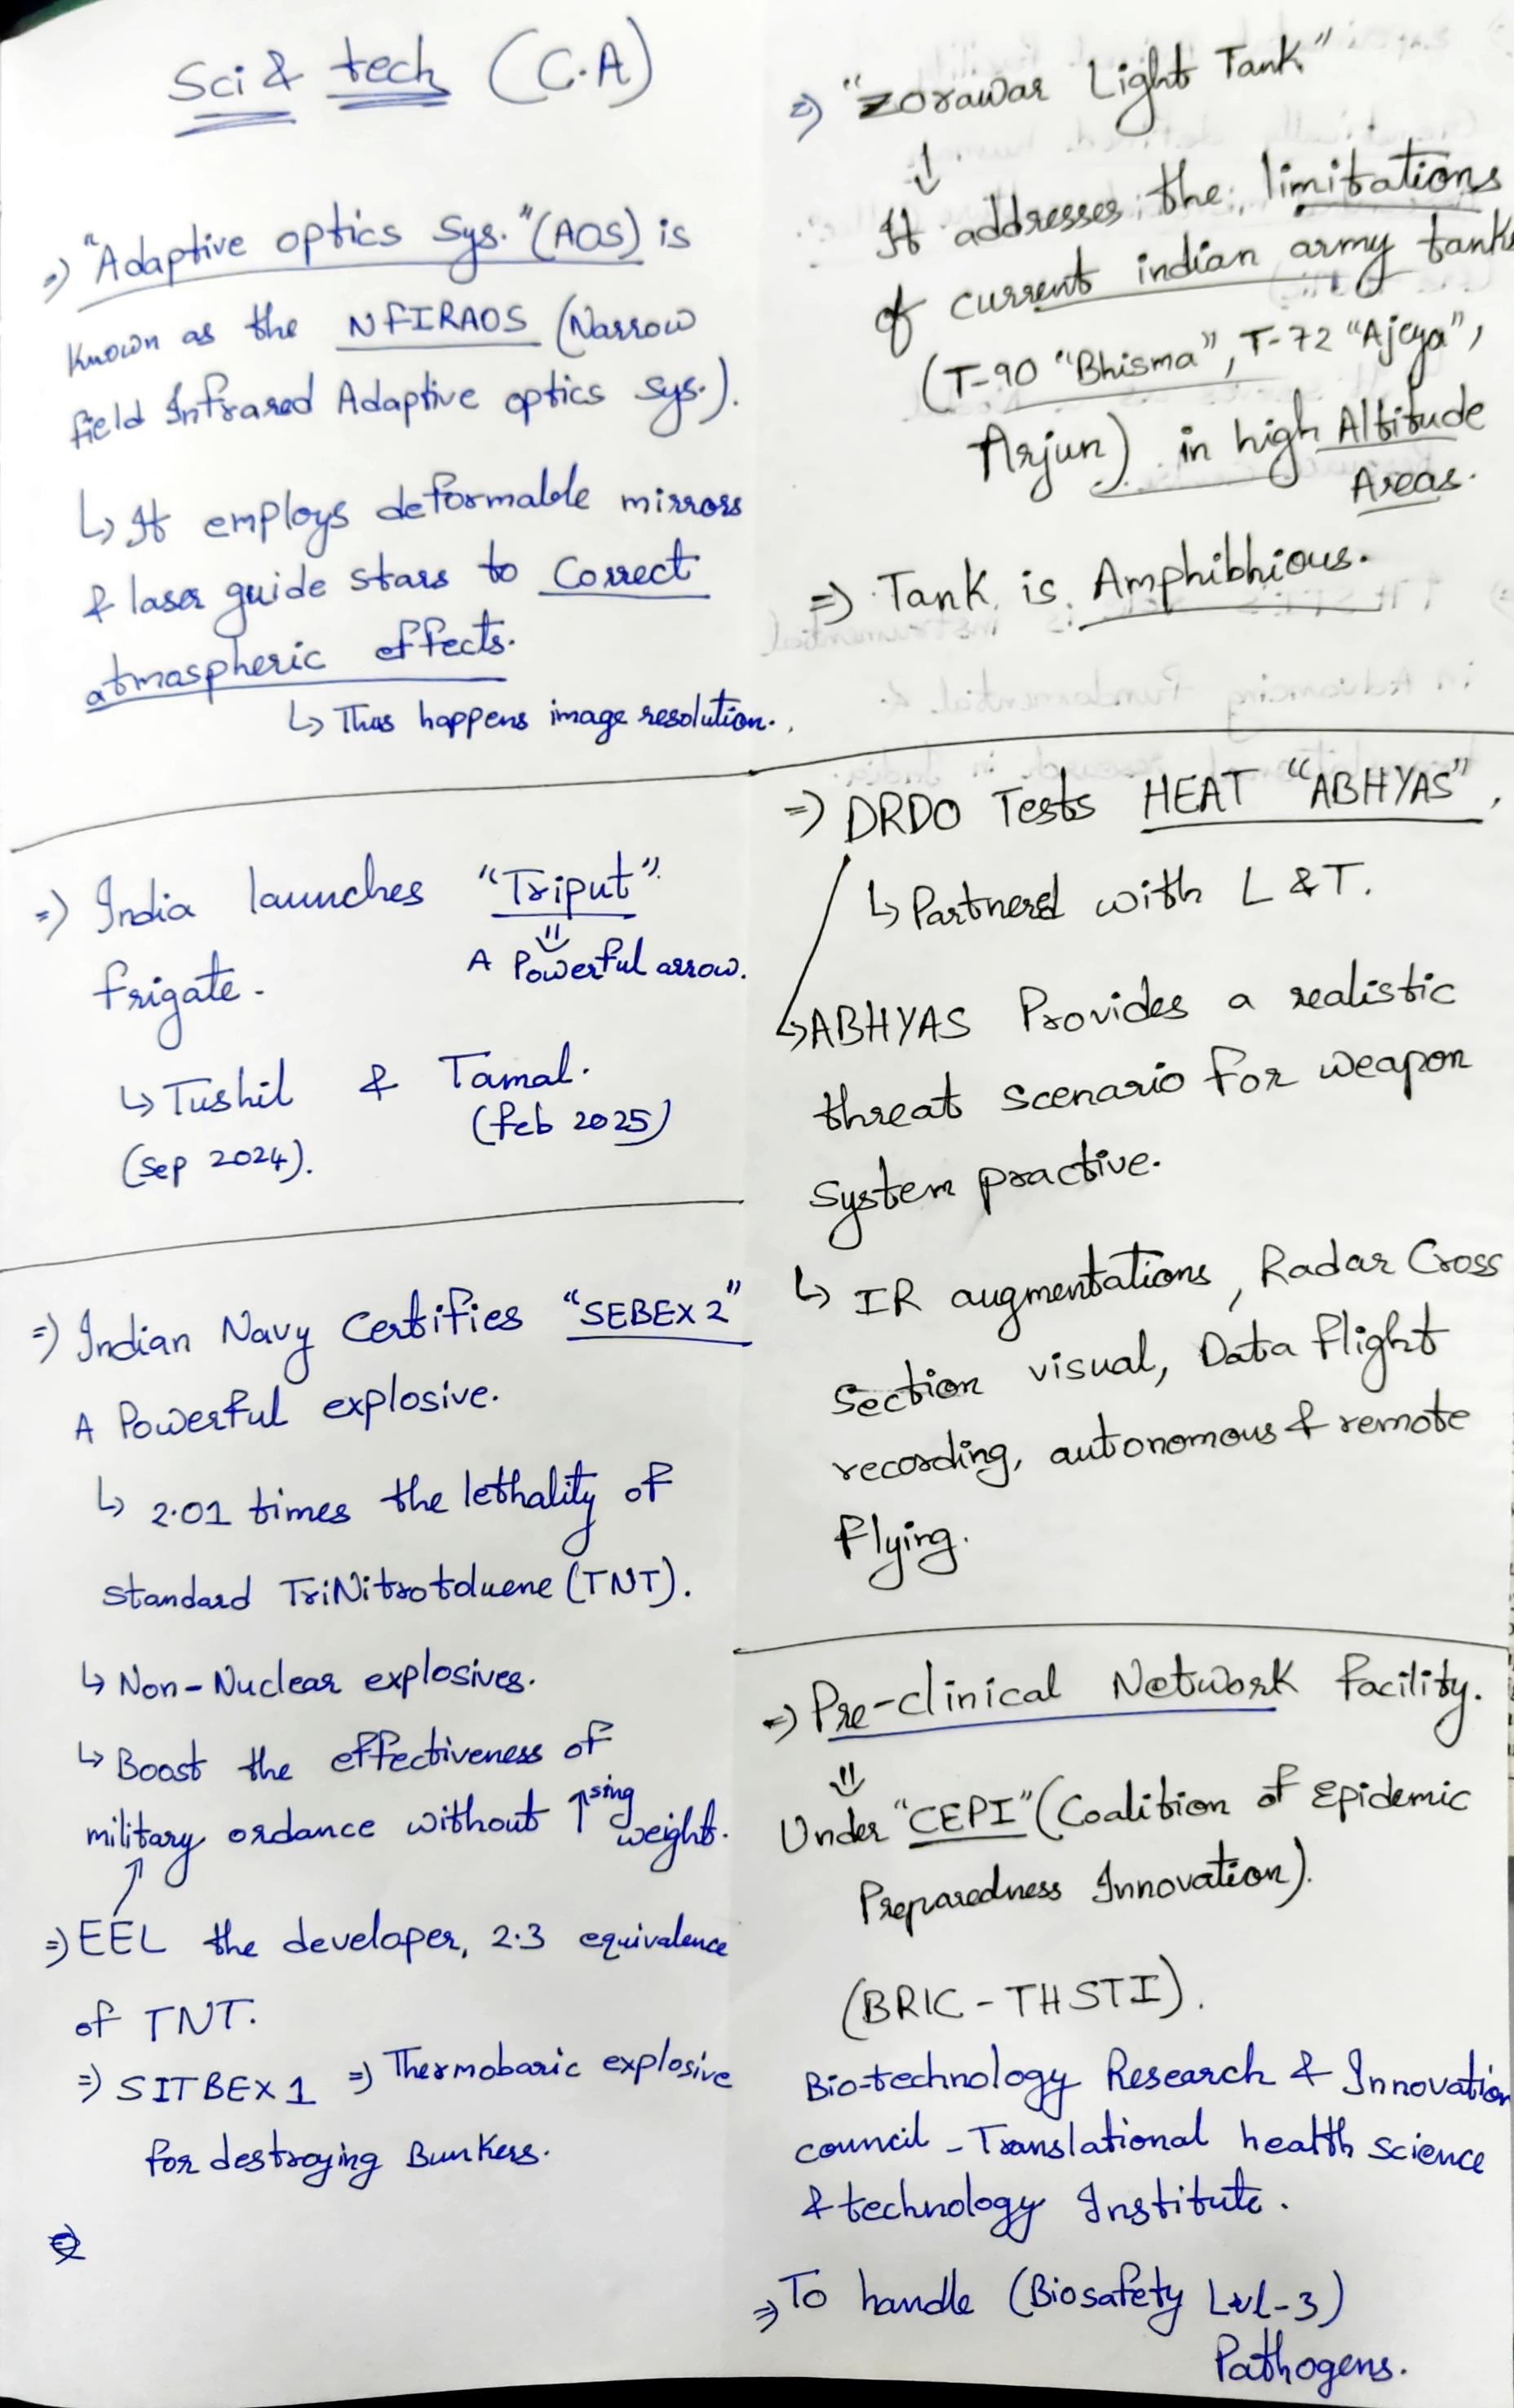 Sci & tech (C.A)
=) "Adaptive optics Sys." (AOS) is
known as the NFIRAOS (Narrow
field Infrared Adaptive optics sys.).
↳ It employs deformable mirrors
& laser guide stars to Correct
atmospheric effects.
↳ Thus happens image resolution.
=) India launches "Triput"
frigate.
A Powerful arrow.
↳ Tushil & Tamal.
(Sep 2024). (Feb 2025)
=) Indian Navy Certifies "SEBEX 2"
A Powerful explosive.
↳ 2.01 times the lethality of
standard TriNitrotoluene (TNT).
↳ Non-Nuclear explosives.
↳ Boost the effectiveness of
military ordance without ↑sing weight.
=) EEL the developer, 2.3 equivalence
of TNT.
=) SITBEX 1 =) Thermobaric explosive
for destroying Bunkers.
=) "Zorawar Light Tank"
↓
It addresses the limitations
of current indian army tanks
(T-90 "Bhisma", T-72 "Ajeya",
Arjun) in high Altitude
Areas.
=) Tank is Amphibhious.
=) DRDO Tests HEAT "ABHYAS",
↳ Partnerd with L & T.
↳ ABHYAS Provides a realistic
threat scenario for weapon
system practive.
↳ IR augmentations, Radar Cross
Section visual, Data Flight
recording, autonomous & remote
Flying.
=) Pre-clinical Network Facility.
⇓
Under "CEPI" (Coalition of Epidemic
Preparedness Innovation).
(BRIC - THSTI).
Bio-technology Research & Innovation
council - Translational health science
& technology Institute.
=) To handle (Biosafety Lvl-3)
Pathogens.